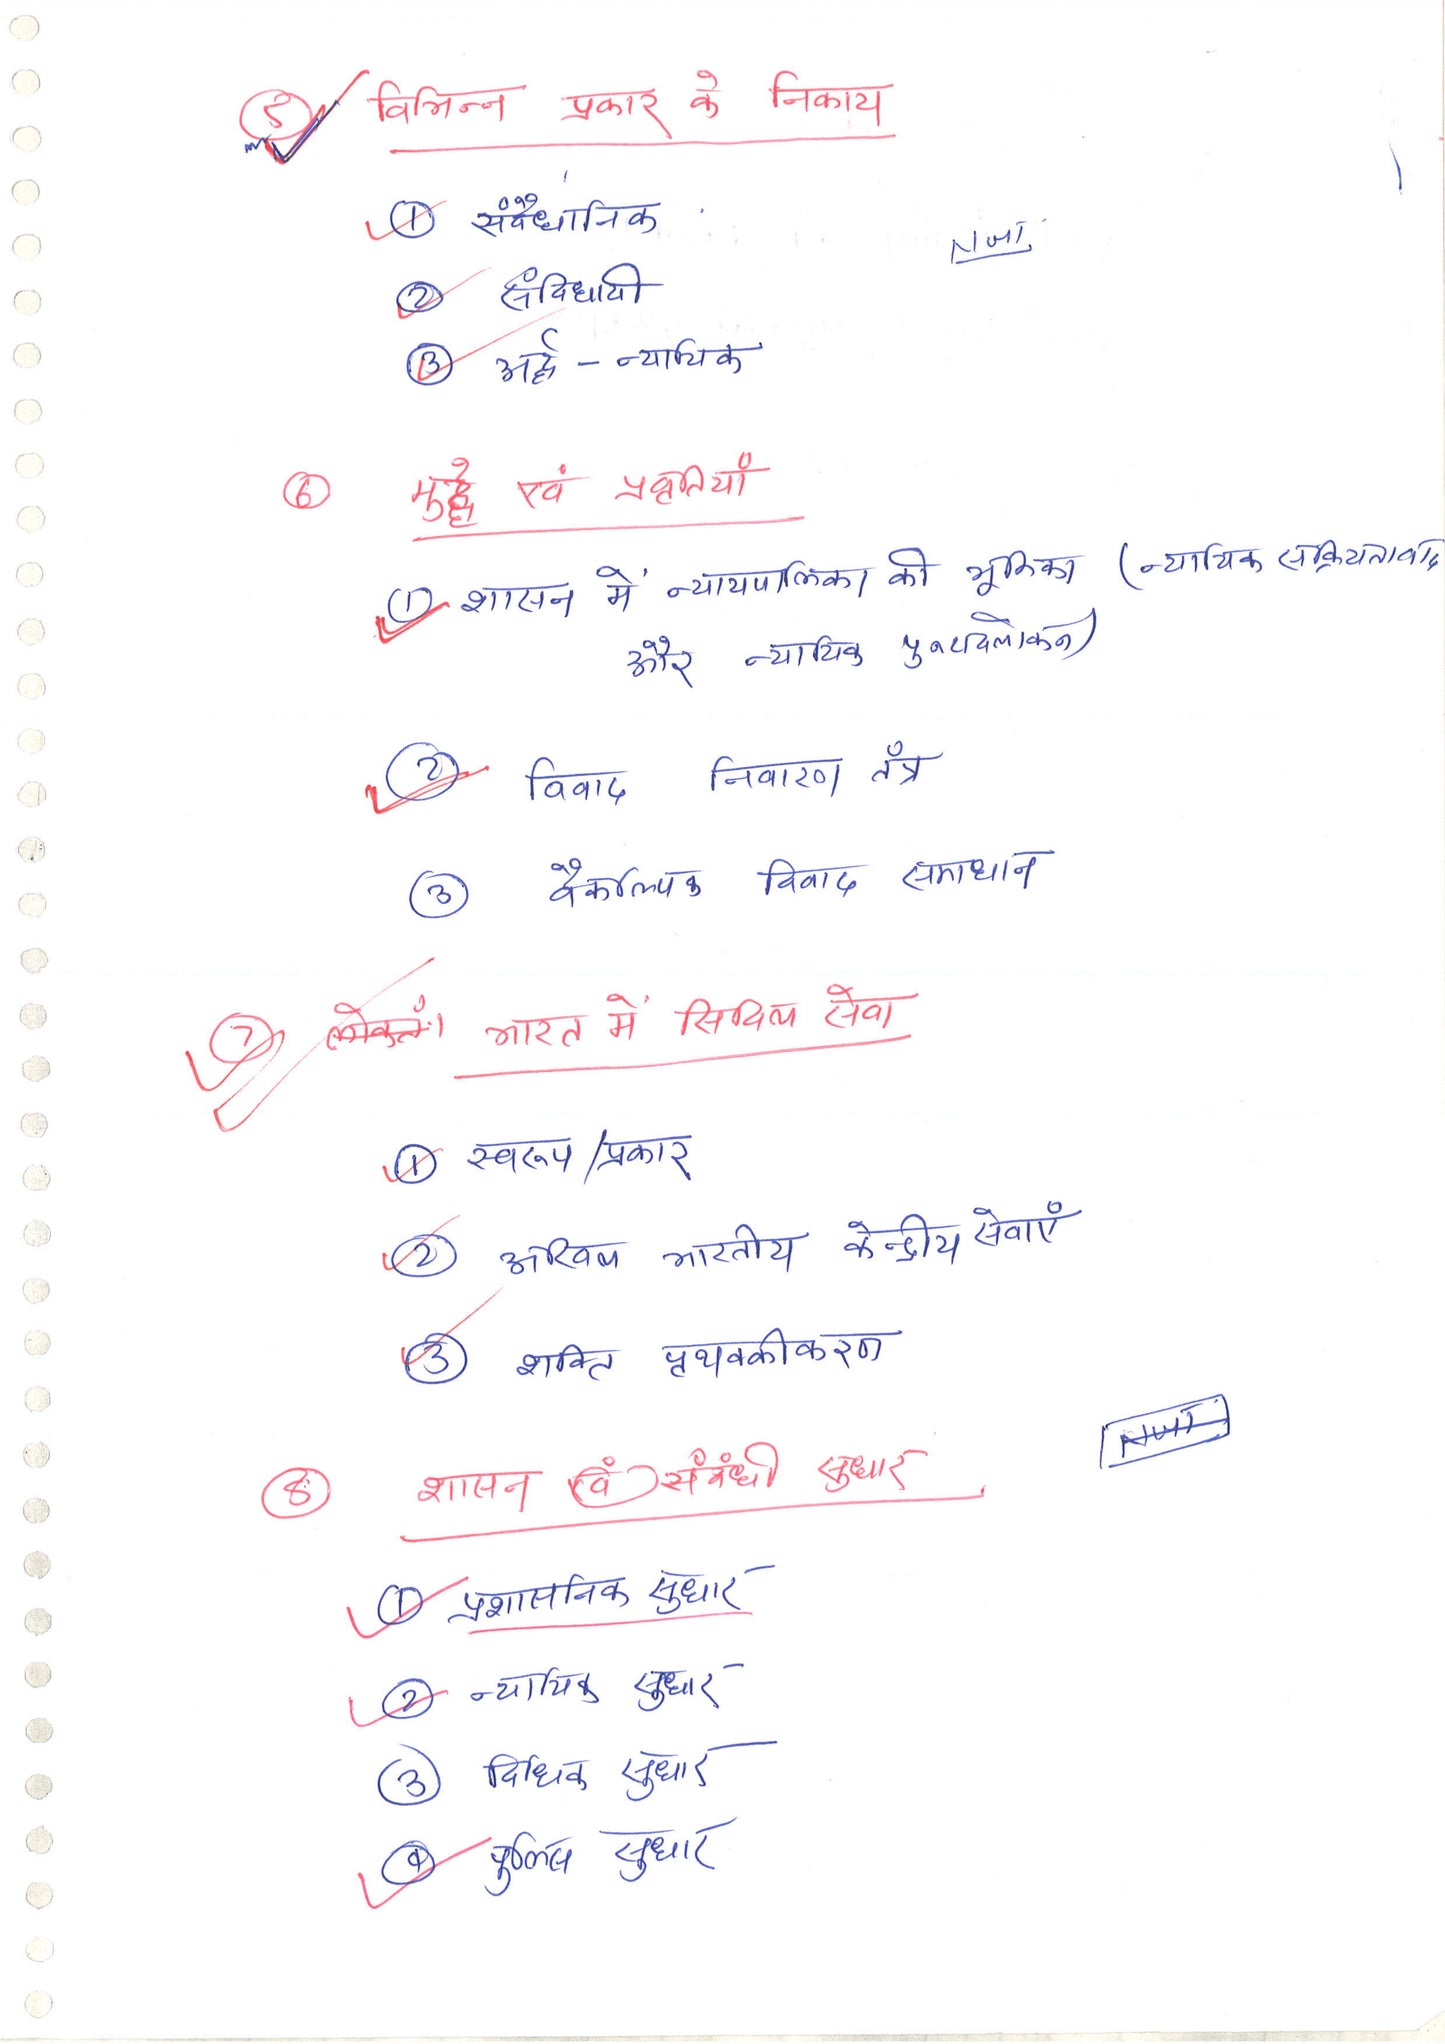 5 विभिन्न प्रकार के निकाय
1 संवैधानिक
2 संविधायी
3 अर्द्ध - न्यायिक
6 मुद्दे एवं प्रवृतियाँ
1 शासन में न्यायपालिका की भूमिका (न्यायिक सक्रियतावाद
और न्यायिक पुनरावलोकन)
2 विवाद निवारण तंत्र
3 वैकल्पिक विवाद समाधान
7 भारत में सिविल सेवा
1 स्वरूप/प्रकार
2 अखिल भारतीय केन्द्रीय सेवाएँ
3 शक्ति पृथक्कीकरण
8 शासन एवं संबंधी सुधार
1 प्रशासनिक सुधार
2 न्यायिक सुधार
3 विधिक सुधार
4 पुलिस सुधार